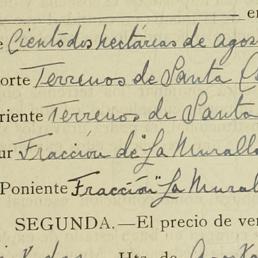 en
e Ciento dos hectáreas de agos
orte Terrenos de Santa
riente Terrenos de Santa
ur Fracción de "La Muralla
Poniente Fracción "La Mural
SEGUNDA.—El precio de ven
Hts. de